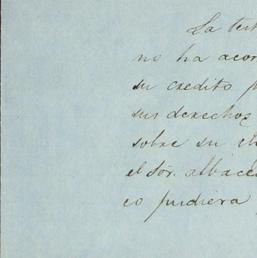 La test
no ha acor
su credito p
sus derechos
sobre su
el Sor. albace
co pudiera